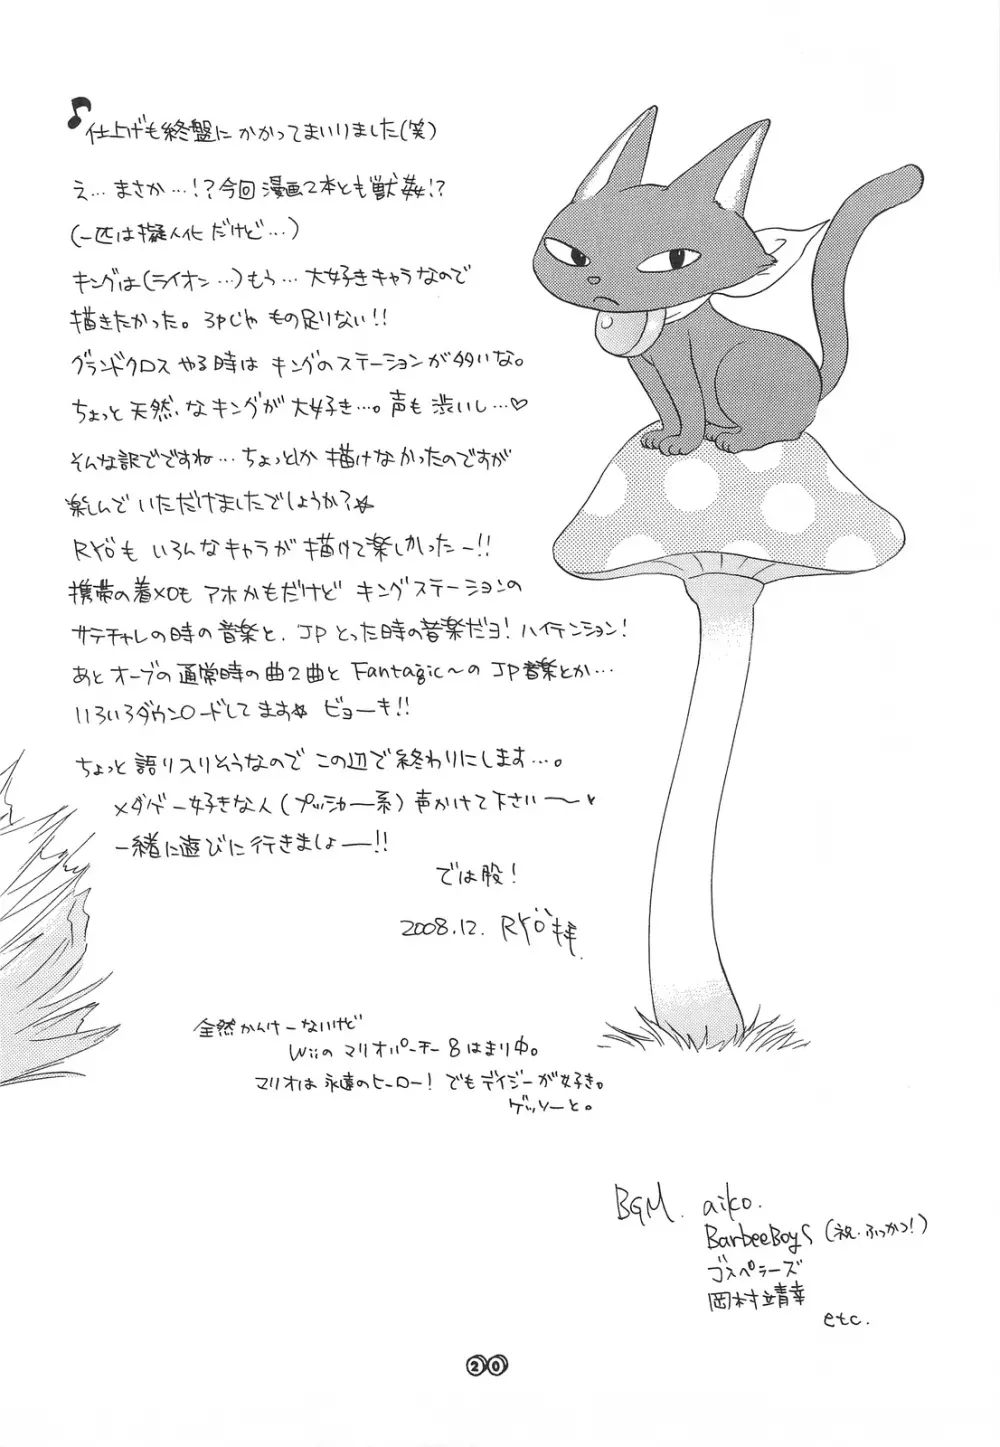 仕上げも終盤にかかってまいりました(笑)
え…まさか…!?今回漫画2本とも獣姦!?
(一匹は擬人化だけど…)
キングは(ライオン…)もう…大好きキャラなので
描きたかった。3Pじゃもの足りない!!
グランドクロスやる時はキングのステーションが多いな。
ちょっと天然、なキングが大好き…。声も渋いし…♡
そんな訳でですね…ちょっとしか描けなかったのですが
楽しんでいただけましたでしょうか?☆
RYÖもいろんなキャラが描けて楽しかったー!!
携帯の着メロもアホかもだけどキングステーションの
サテチャレの時の音楽と、JPとった時の音楽だヨ!ハイテンション!
あとオーブの通常時の曲2曲とFantagic〜のJP音楽とか…
いろいろダウンロードしてます☆ビョーキ!!
ちょっと語り入りそうなのでこの辺で終わりにします…。
メダゲー好きな人(プッシャー系)声かけて下さい〜♥
一緒に遊びに行きましょー!!
では股!
2008.12. RYÖ拝
全然かんけーないけど
Wiiのマリオパーチー8はまり中。
マリオは永遠のヒーロー!でもデイジーが好き。
ゲッソーと。
BGM. aiko.
BarbeeBoys(祝・ふっかつ!)
ゴスペラーズ
岡村靖幸
etc.
20